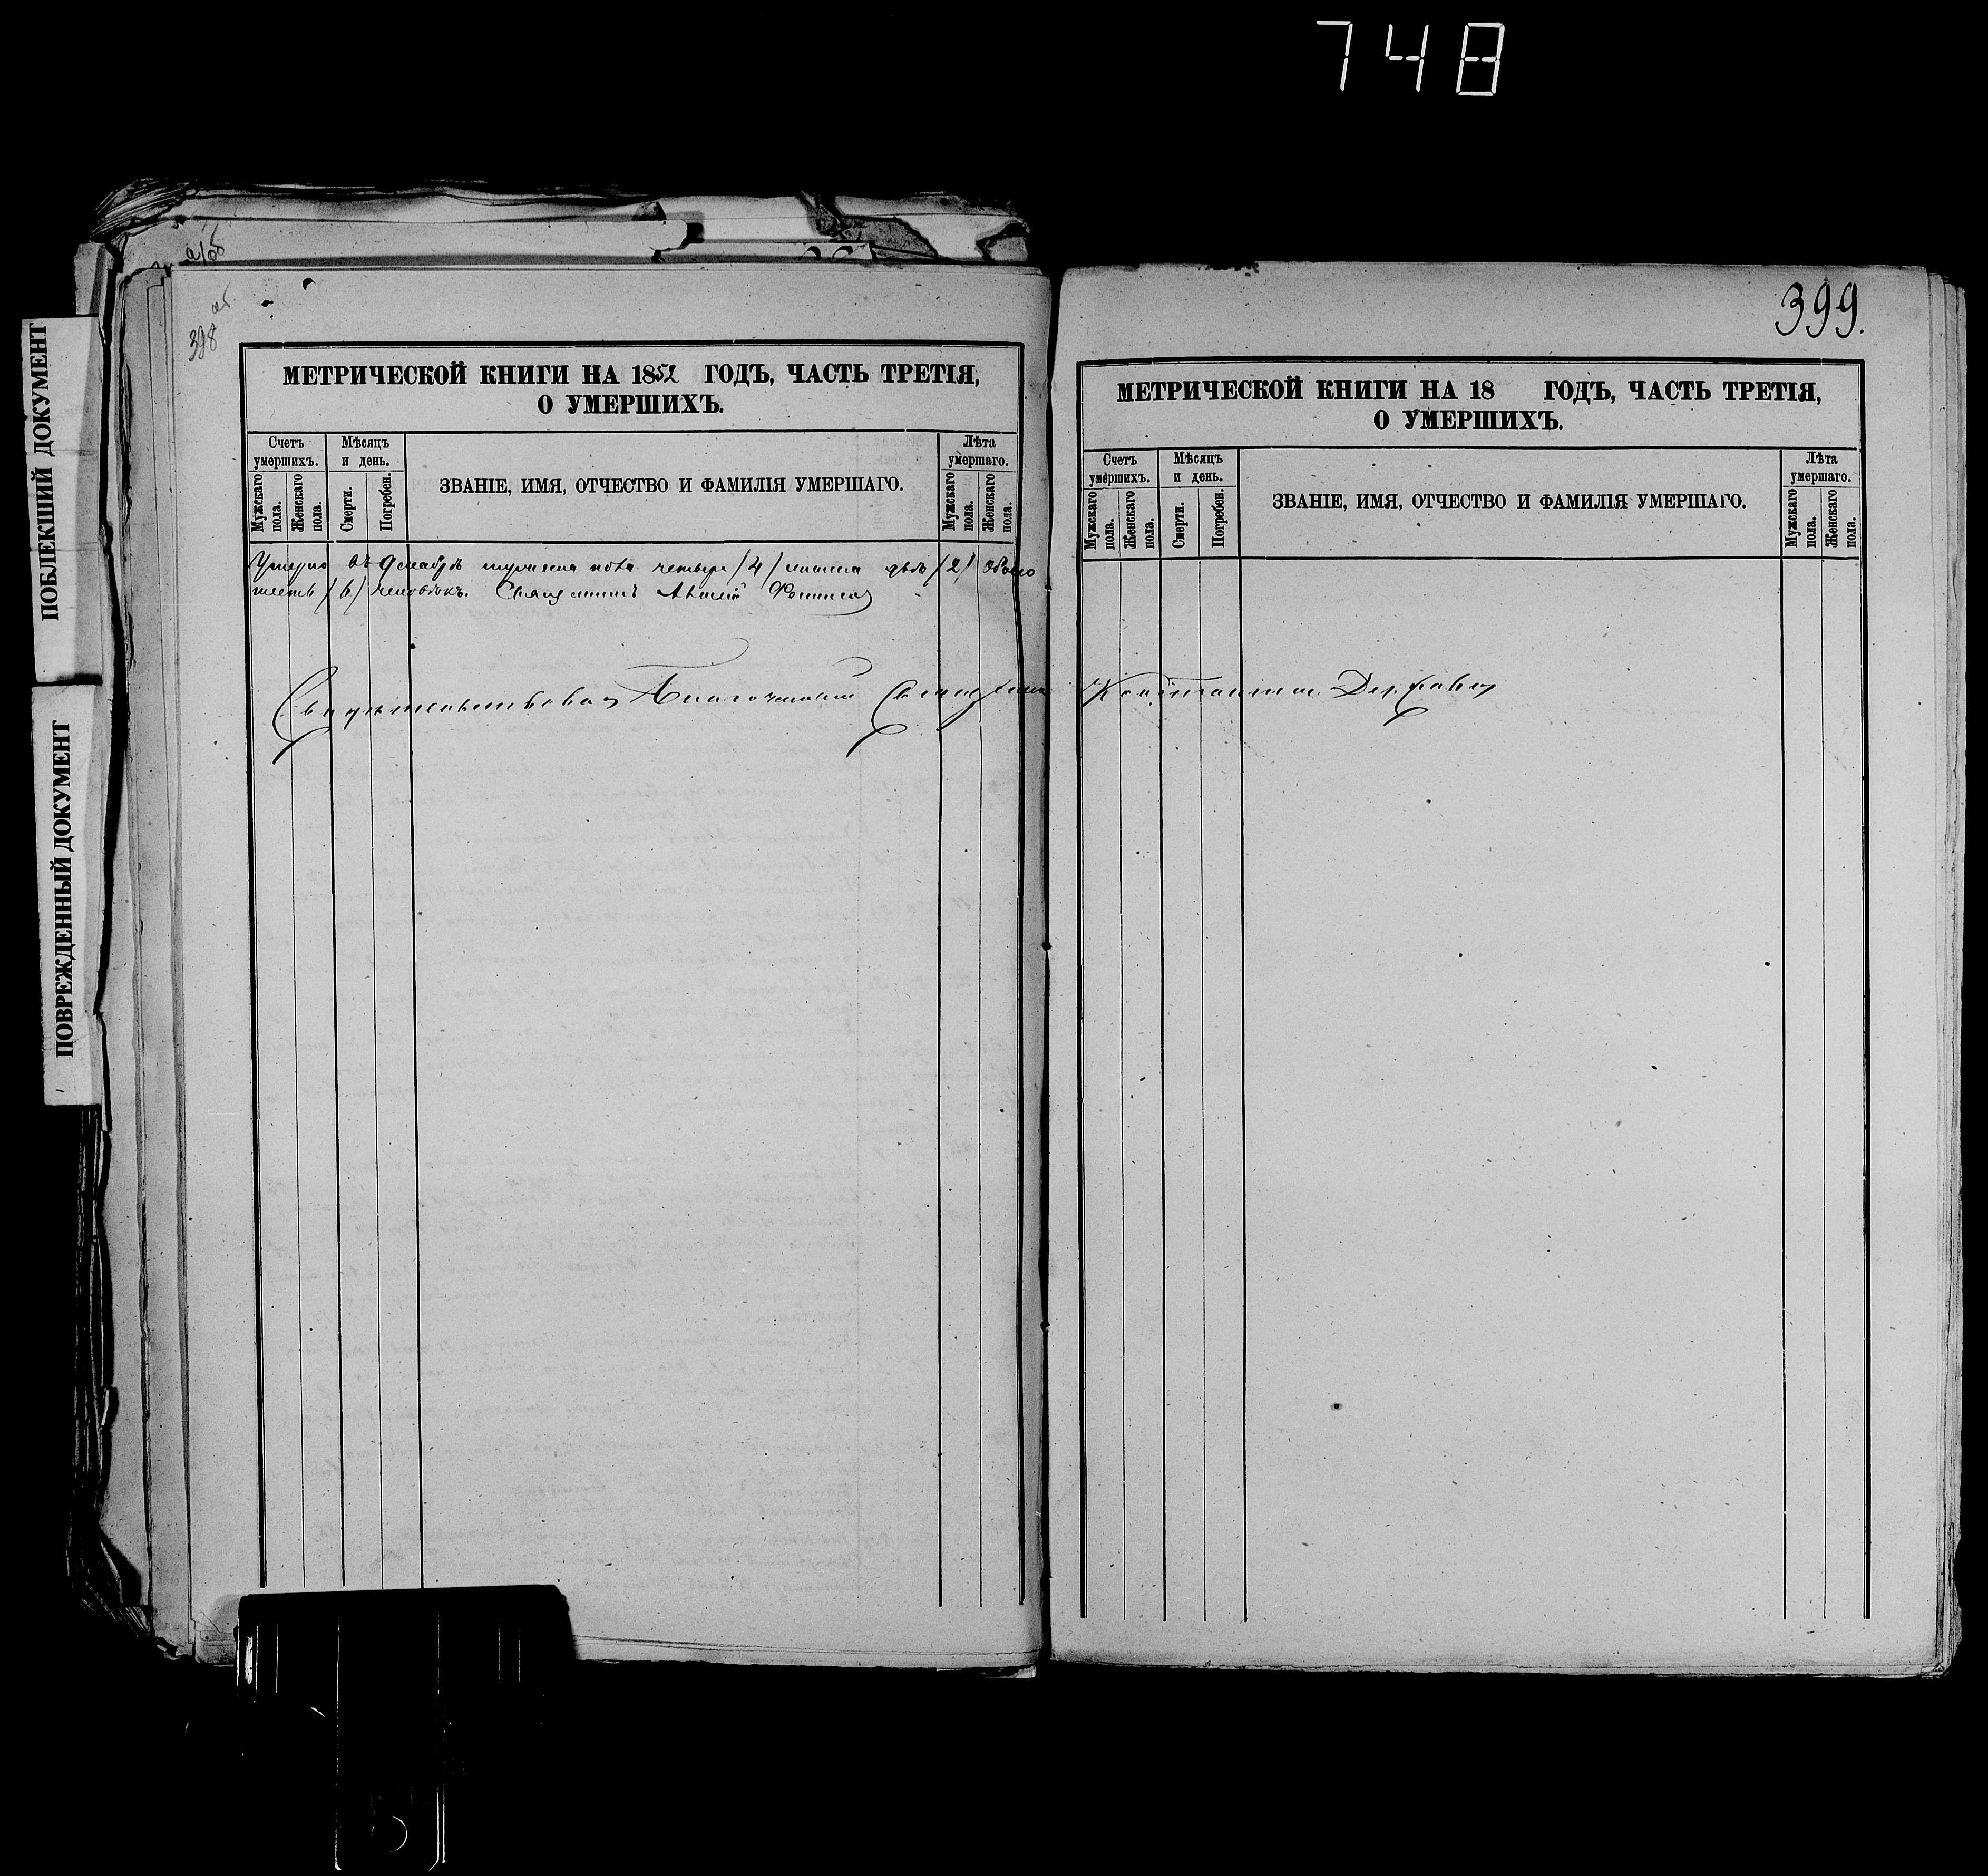 748
об
398 об
399.
ПОБЛЕКШИЙ ДОКУМЕНТ
ПОВРЕЖДЕННЫЙ ДОКУМЕНТ
МЕТРИЧЕСКОЙ КНИГИ НА 1852 ГОДЪ, ЧАСТЬ ТРЕТІЯ,
О УМЕРШИХЪ.
Счетъ умершихъ.
Мужскаго пола.
Женскаго пола.
Мѣсяцъ и день.
Смерти.
Погребен.
ЗВАНІЕ, ИМЯ, ОТЧЕСТВО И ФАМИЛІЯ УМЕРШАГО.
Лѣта умершаго.
Мужскаго пола.
Женскаго пола.
Умерло въ Декабрѣ мужеска пола четыре /4/ женска двѣ /2/ Обоего
шесть /6/ человѣкъ. Священникъ
Свидѣтельствовалъ Благочинный Священникъ Константинъ
МЕТРИЧЕСКОЙ КНИГИ НА 18 ГОДЪ, ЧАСТЬ ТРЕТІЯ,
О УМЕРШИХЪ.
Счетъ умершихъ.
Мужскаго пола.
Женскаго пола.
Мѣсяцъ и день.
Смерти.
Погребен.
ЗВАНІЕ, ИМЯ, ОТЧЕСТВО И ФАМИЛІЯ УМЕРШАГО.
Лѣта умершаго.
Мужскаго пола.
Женскаго пола.